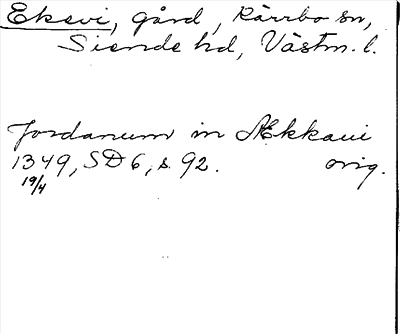 Ekevi, gård, Kärrbo sn,
Siende hd, Västm. l.
Jordanum in Ækkaui
1349, SD 6, s. 92. orig.
19/4